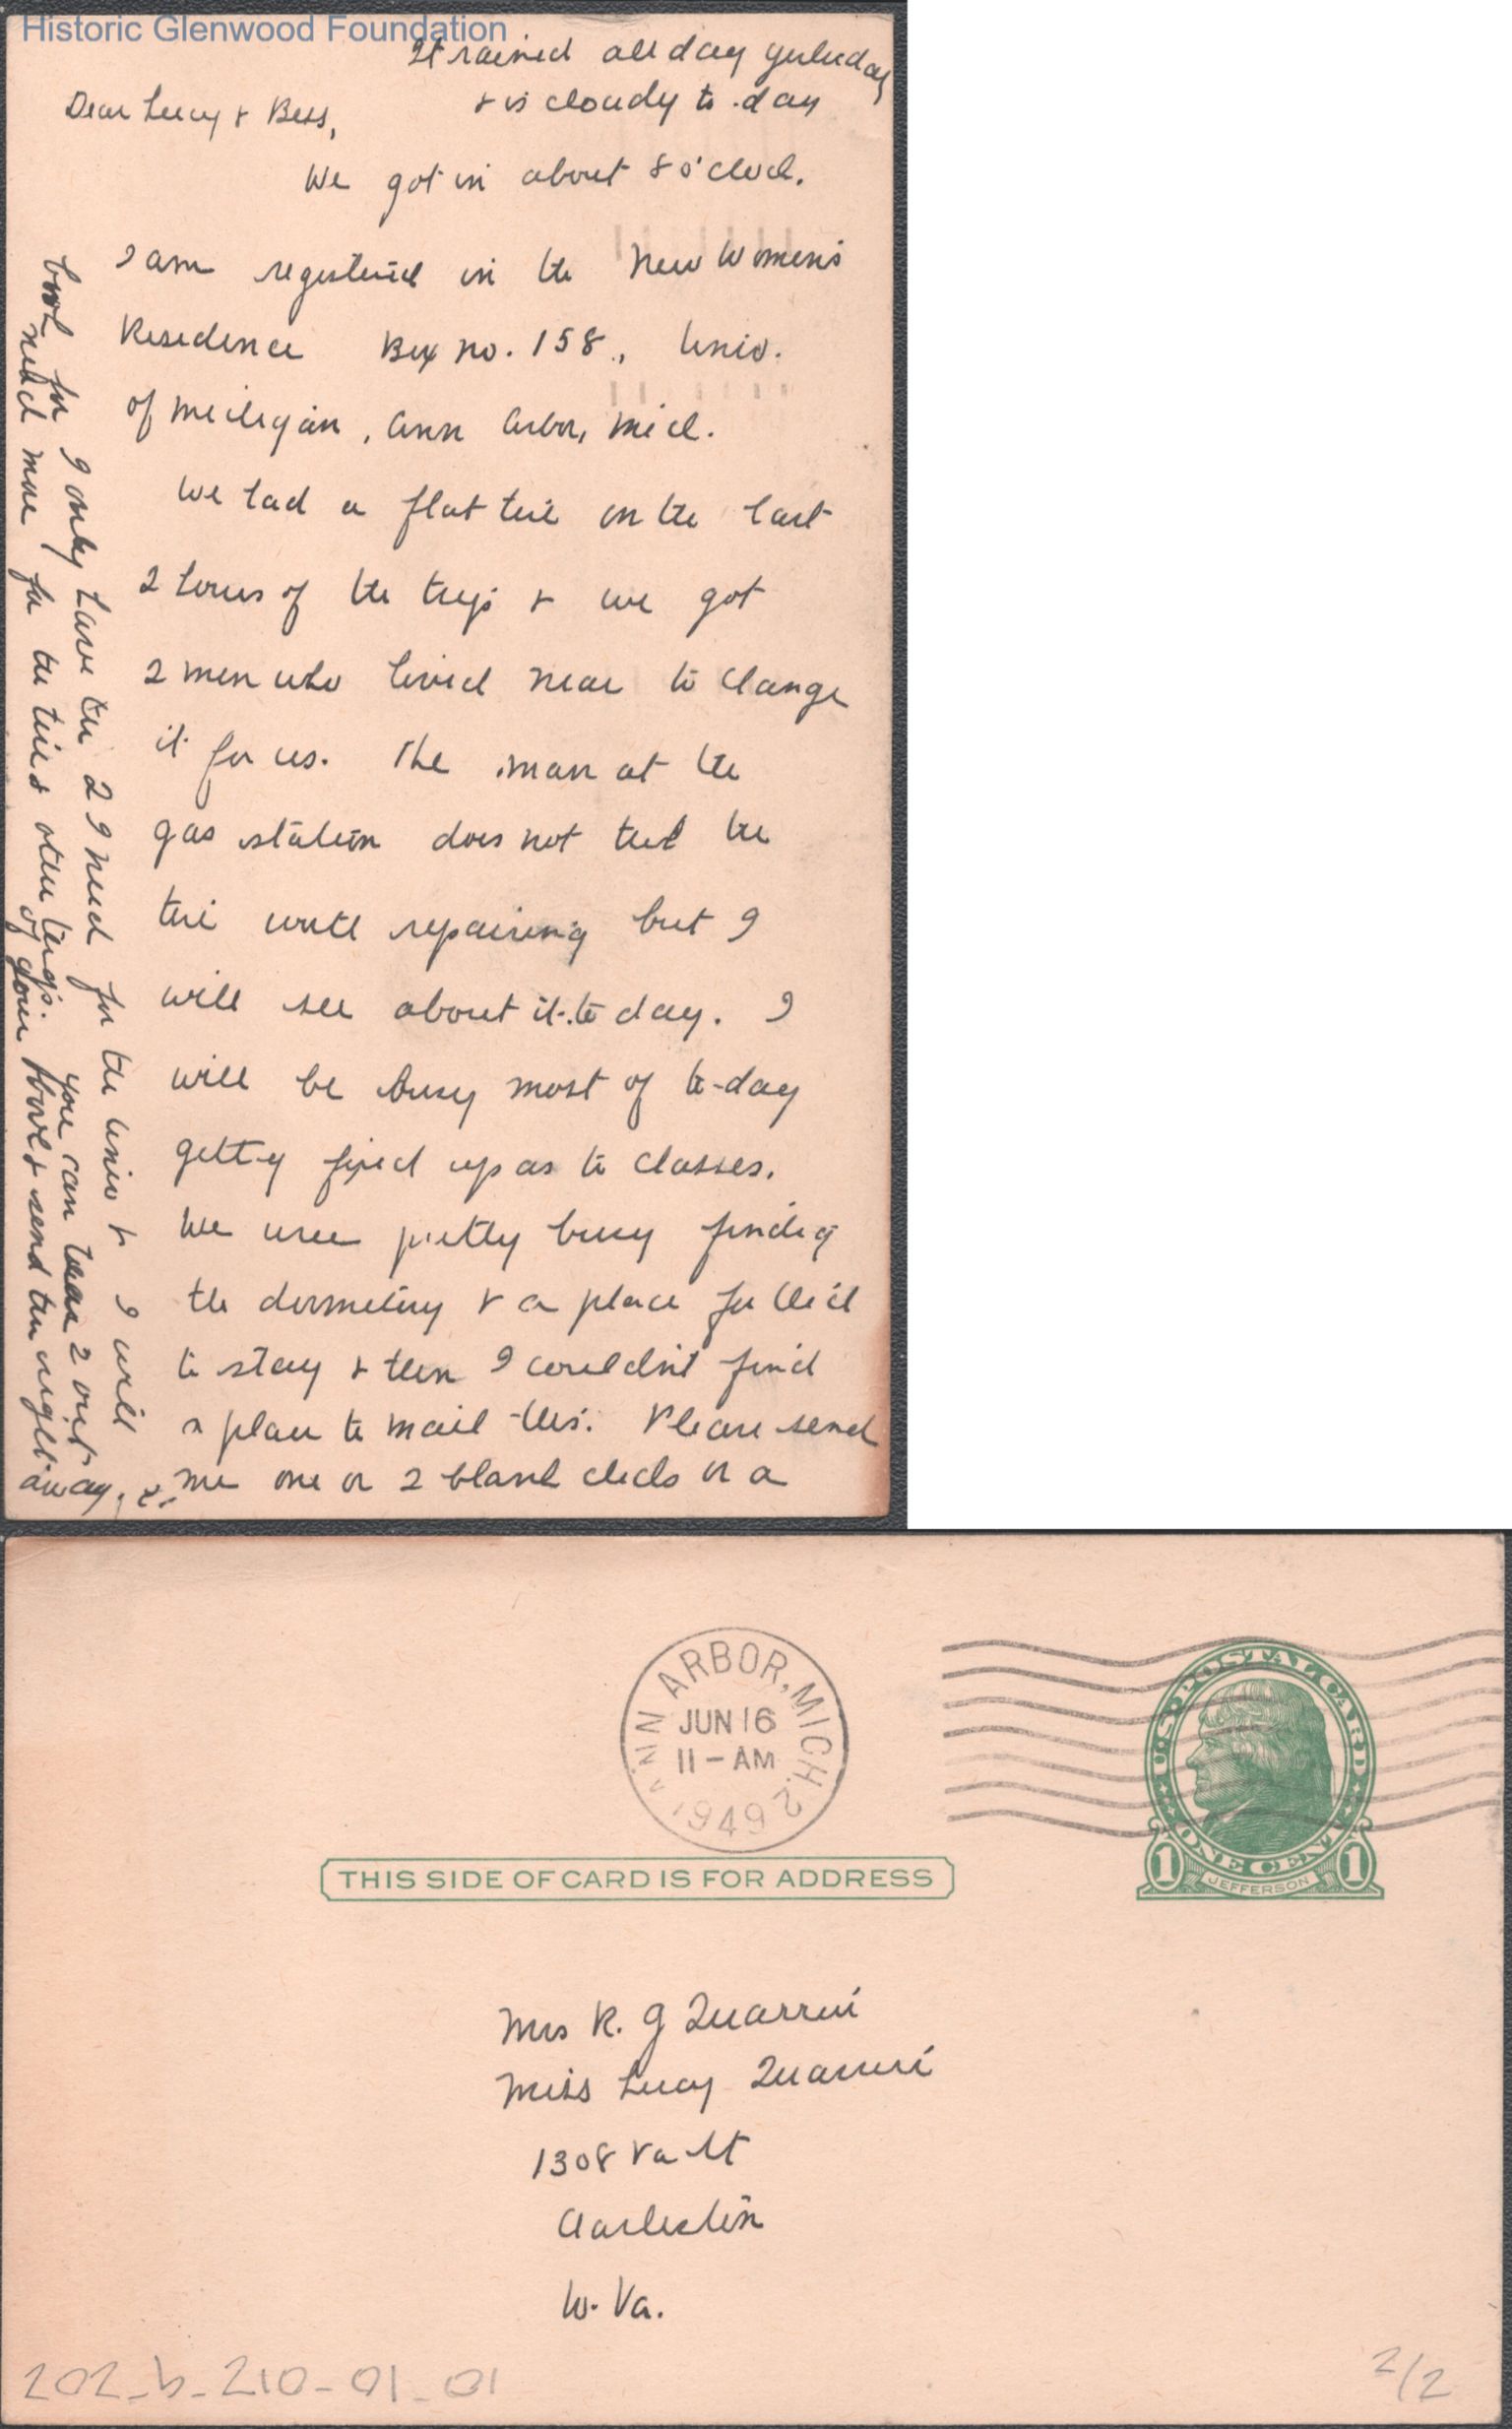 Historic Glenwood Foundation
It rained all day yesterday
& is cloudy to-day
Dear Lucy & Bess,
We got in about 8 o'clock.
I am registered in the New Women's
Residence Box no. 158, Univ.
of Michigan, Ann Arbor, Mich.
We had a flat tire on the last
2 hours of the trip & we got
2 men who lived near to change
it for us. The man at the
gas station does not think the
tire worth repairing but I
will see about it to day. I
will be busy most of to-day
getting fixed up as to classes.
We were pretty busy finding
the dormitory & a place for
to stay & then I couldn't find
a place to mail this. Please send
me one or 2 blank checks or a
book for I only have the 2 I need for the Univ & I will
need more for the tires & other things. You can tear 2 out
of your book & send them right
away.
ANN ARBOR, MICH. 2
JUN 16
11 - AM
1949
U.S. POSTAL CARD
ONE CENT
1 JEFFERSON 1
THIS SIDE OF CARD IS FOR ADDRESS
Mrs R. G Quarrier
Miss Lucy Quarrier
1308 Va St
Charleston
W. Va.
202_b_210-01_01
2/2